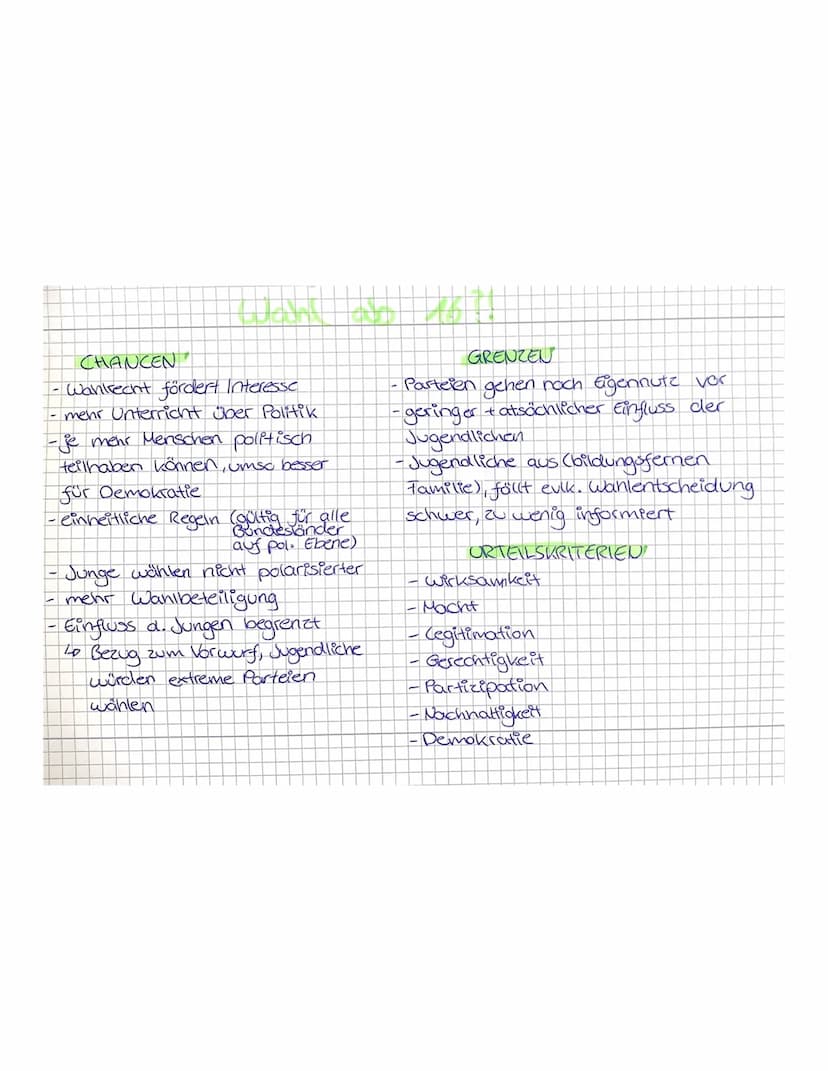 Wahl ab 16?!
CHANCEN
- Wahlrecht fördert Interesse
- mehr Unterricht über Politik
- je mehr Menschen politisch
teilhaben können, umso besser
für Demokratie
- einheitliche Regeln (gültig für alle
Bundesländer
auf pol. Ebene)
- Junge wählen nicht polarisierter
- mehr Wahlbeteiligung
- Einfluss d. Jungen begrenzt
↳ Bezug zum Vorwurf, Jugendliche
würden extreme Parteien
wählen
GRENZEN
- Parteien gehen nach Eigennutz vor
- geringer tatsächlicher Einfluss der
Jugendlichen
- Jugendliche aus (bildungsfernen
Familie), fällt evlt. Wahlentscheidung
schwer, zu wenig informiert
URTEILSKRITERIEN
- Wirksamkeit
- Macht
- Legitimation
- Gerechtigkeit
- Partizipation
- Nachhaltigkeit
- Demokratie